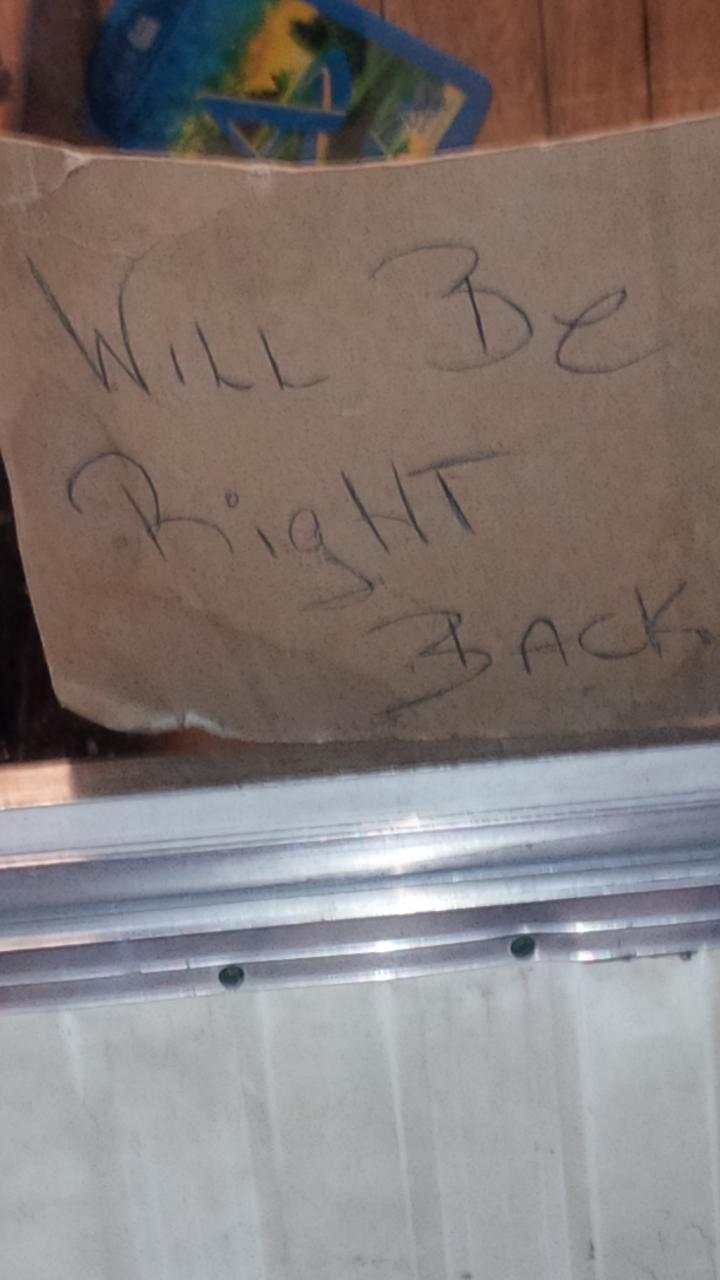 WILL Be
RigHT
BACK.